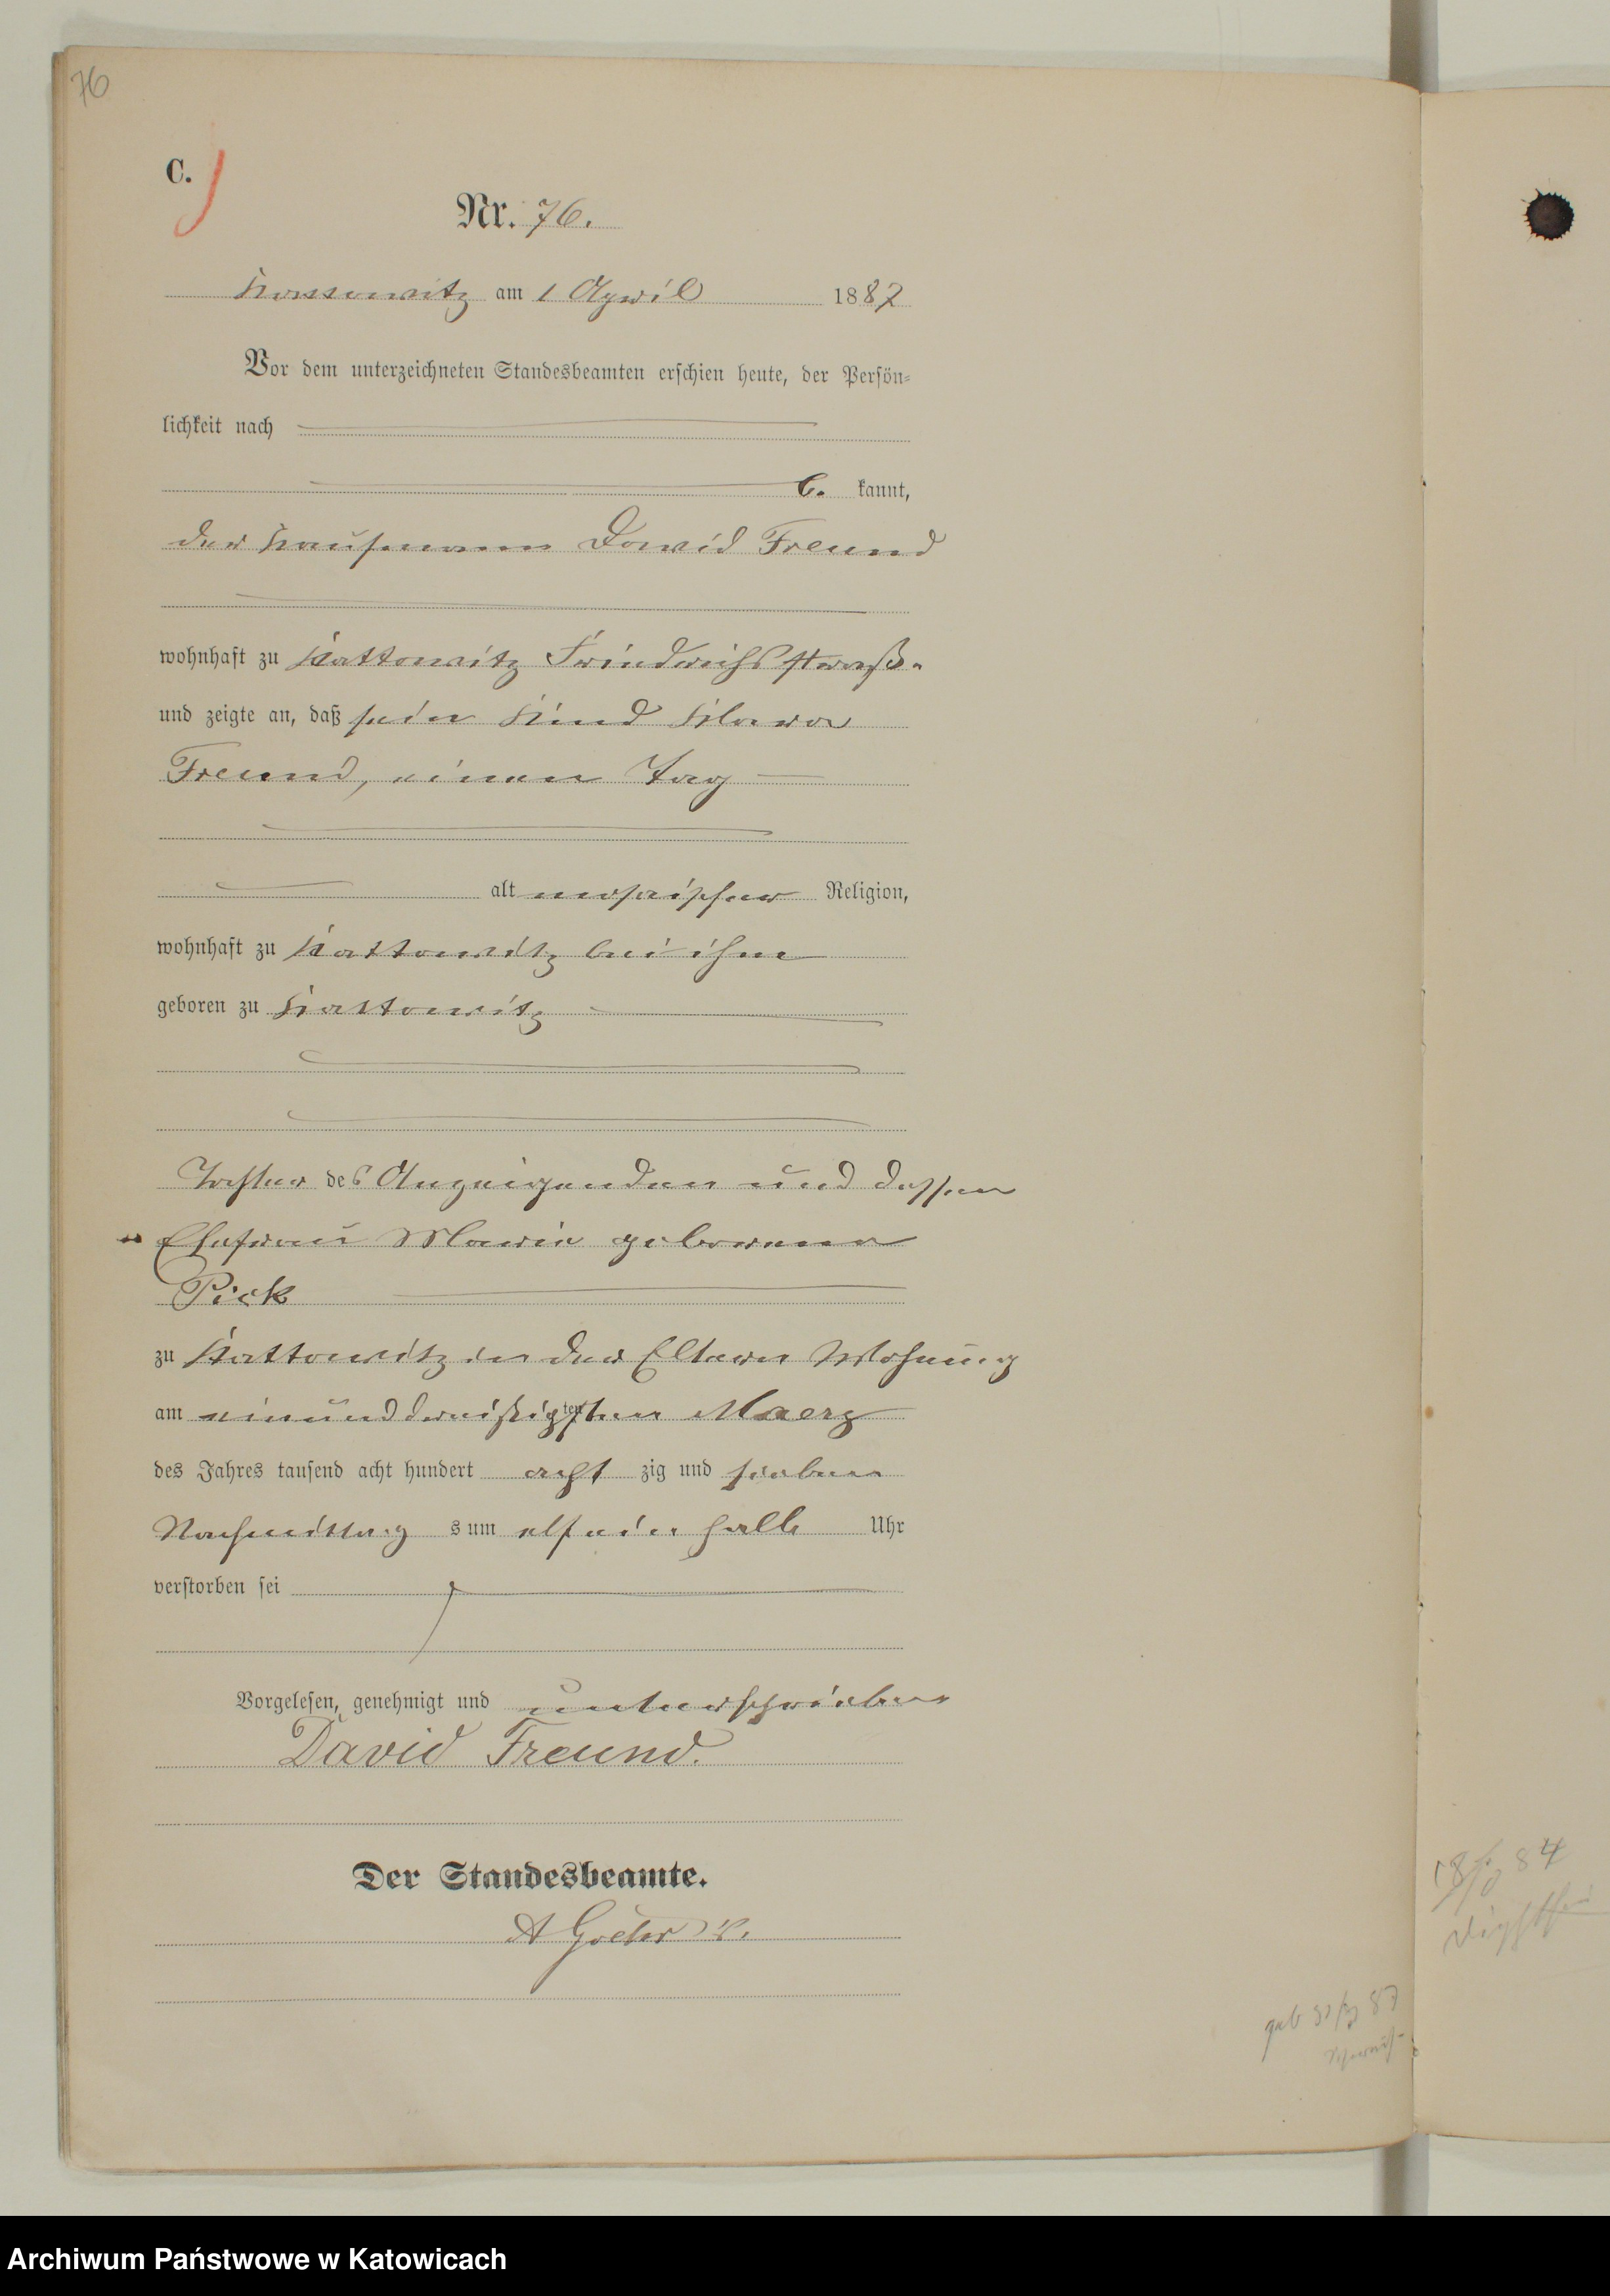 76
C.
Nr. 76.
Kattowitz am 1 April 1887
Vor dem unterzeichneten Standesbeamten erschien heute, der Persön-
lichkeit nach
be kannt,
der Kaufmann David Freund
wohnhaft zu Kattowitz Friedrichsstraße
und zeigte an, daß sein Kind Klara
Freund, einen Tag
alt mosaischer Religion,
wohnhaft zu Kattowitz bei ihm
geboren zu Kattowitz
Tochter des Anzeigenden und dessen
Ehefrau Marie geborene
Pick
zu Kattowitz in der Eltern Wohnung
am einunddreißigsten ten Maerz
des Jahres tausend acht hundert acht zig und sieben
Nachmittag s um elf ein halb Uhr
verstorben sei
Vorgelesen, genehmigt und unterschrieben
David Freund.
Der Standesbeamte.
geb 31/3 87
18/3 84
Archiwum Państwowe w Katowicach